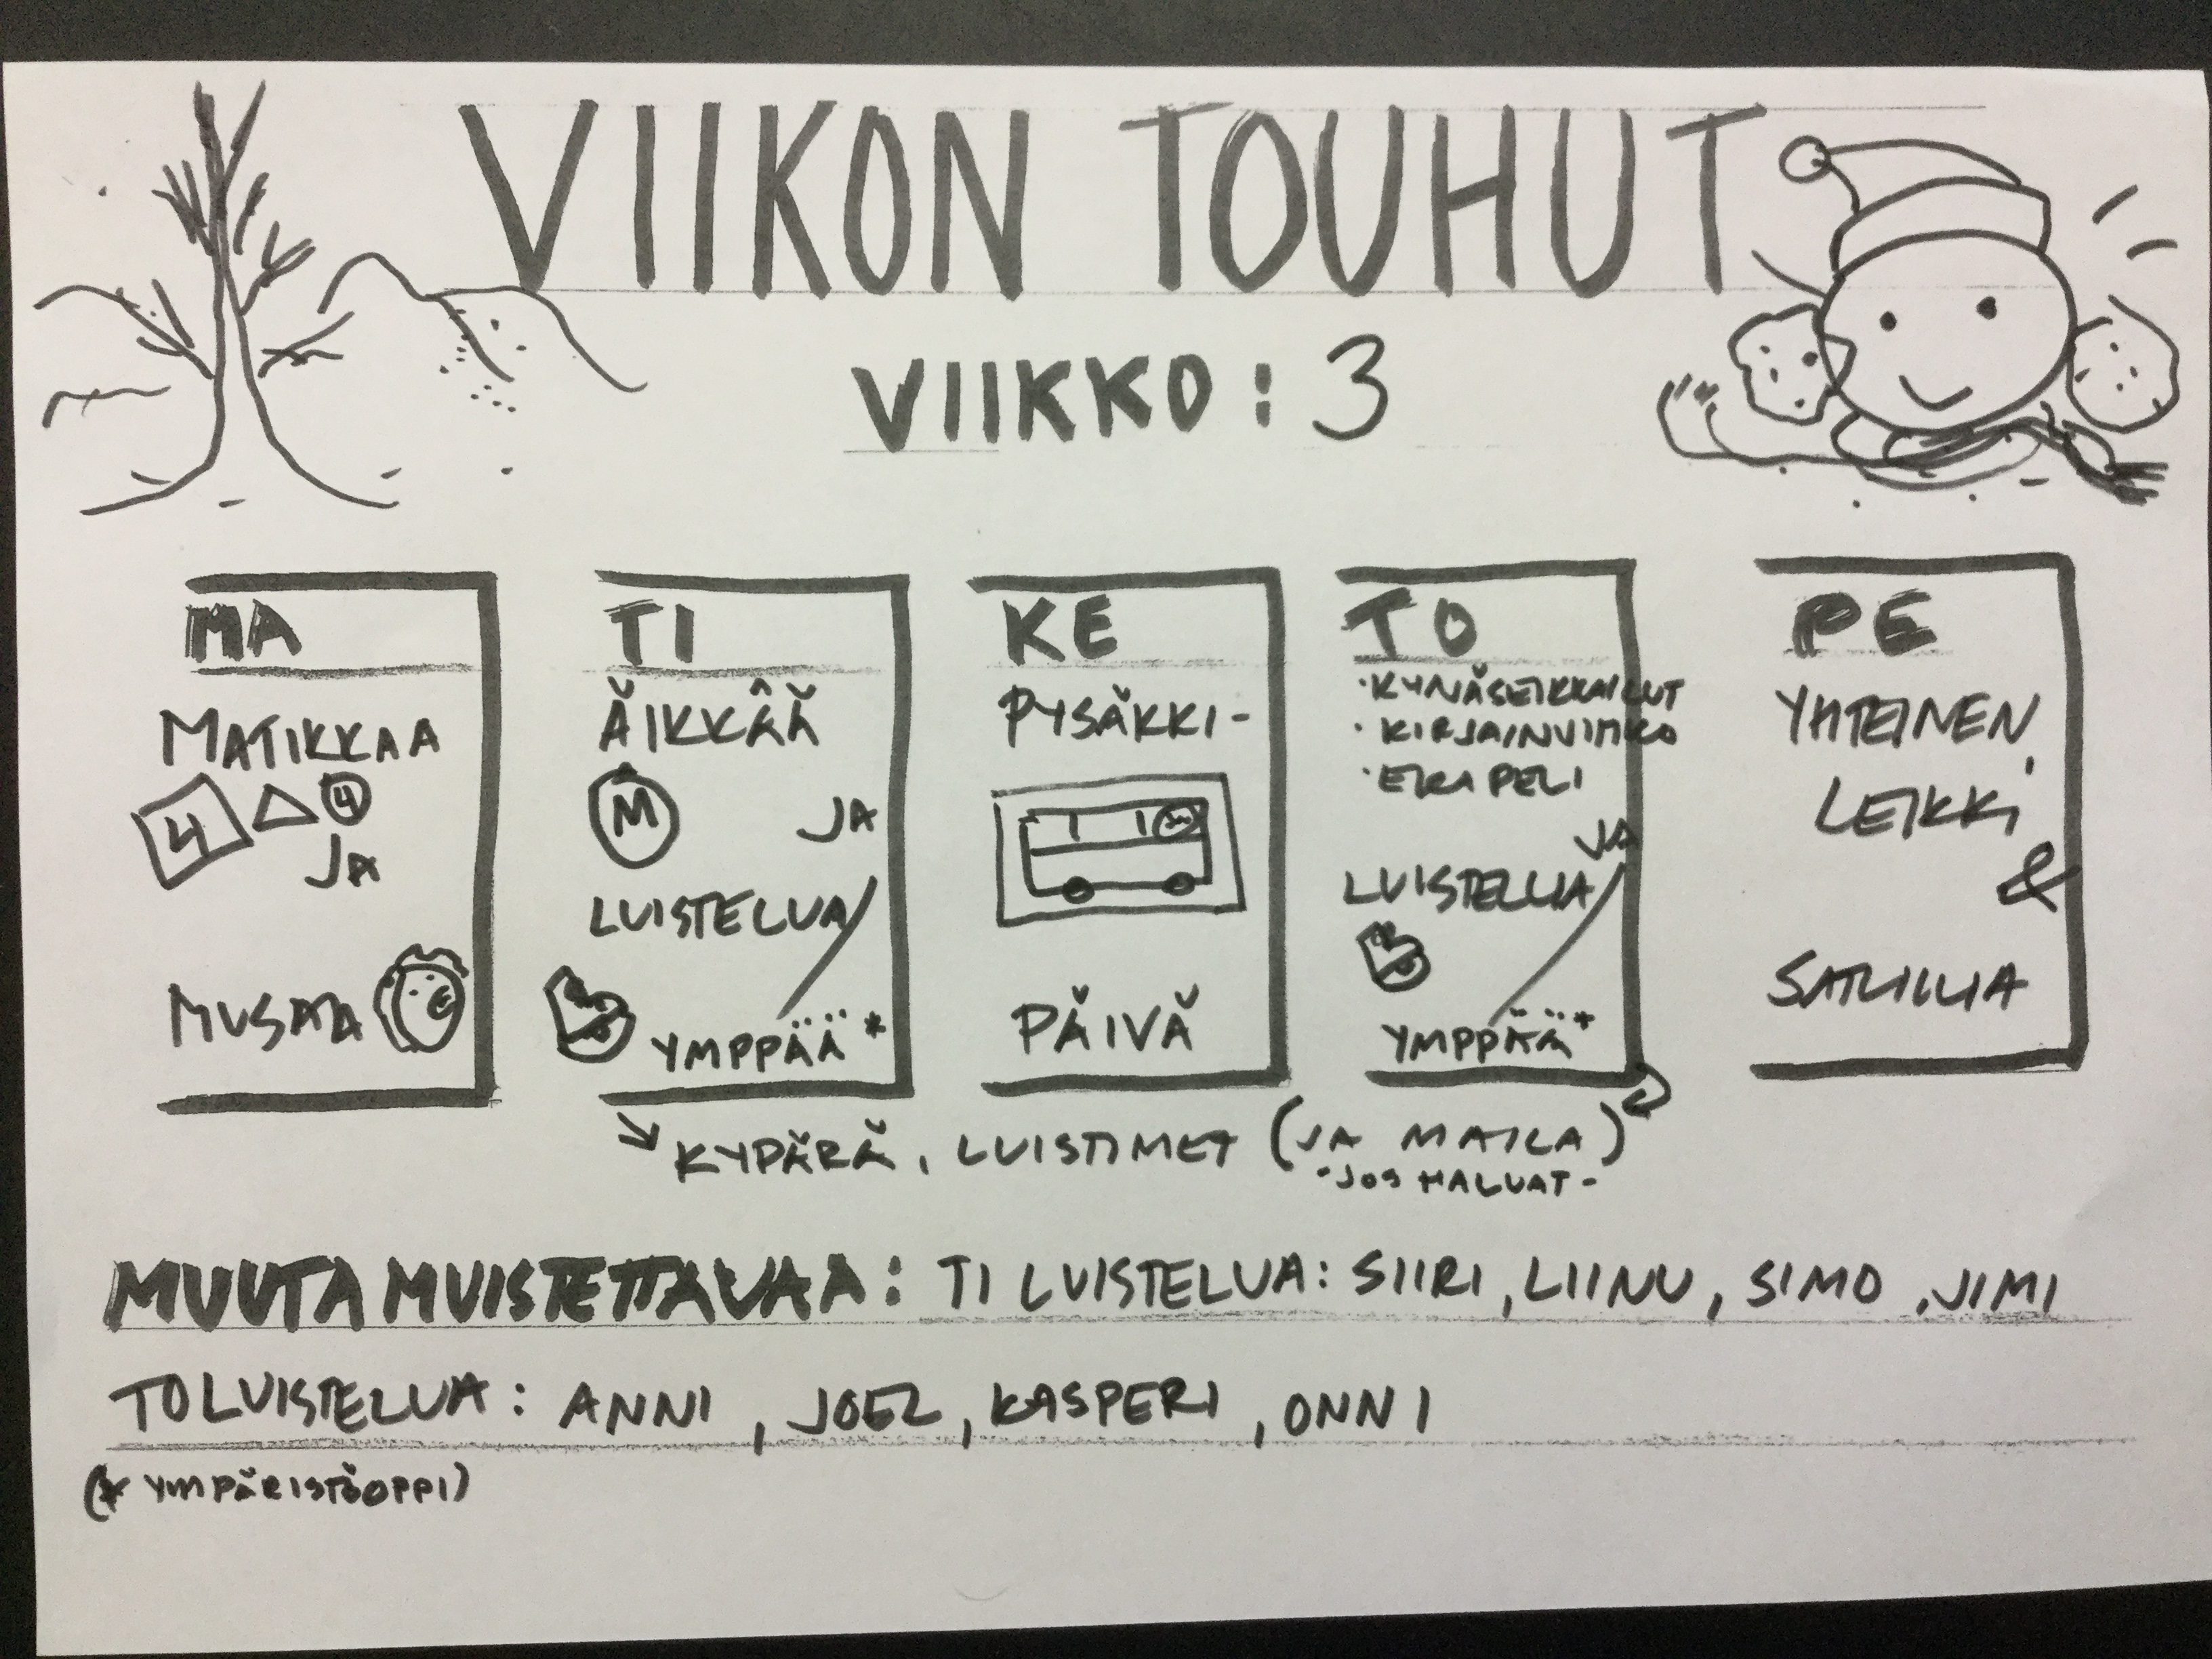 VIIKON TOUHUT
VIIKKO: 3
MA
MATIKKAA
4 4
JA
MUSAA
TI
ÄIKKÄÄ
M JA
LUISTELUA/
YMPPÄÄ*
KE
PYSÄKKI-
PÄIVÄ
TO
·KYNÄSEIKKAILUT
·KIRJAINVIHKO
·EKAPELI
JA
LUISTELUA/
YMPPÄÄ*
PE
YHTEINEN
LEIKKI
&
SATUILUA
KYPÄRÄ, LUISTIMET (JA MAILA)
-JOS HALUAT-
MUUTA MUISTETTAVAA: TI LUISTELUA: SIIRI, LIINU, SIMO, JIMI
TO LUISTELUA: ANNI, JOEL, KASPERI, ONNI
(* YMPÄRISTÖOPPI)